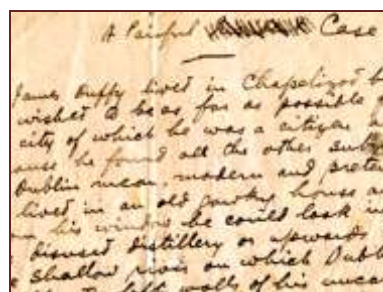 A Painful Case
James Duffy lived in Chapelizod b
wished to be as far as possible
city of which he was a citizen
ause he found all the other subu
Dublin mean, modern and preten
lived in an old house a
his window he could look in
disused distillery or upwards
shallow river on which Dubl
walls of his unca